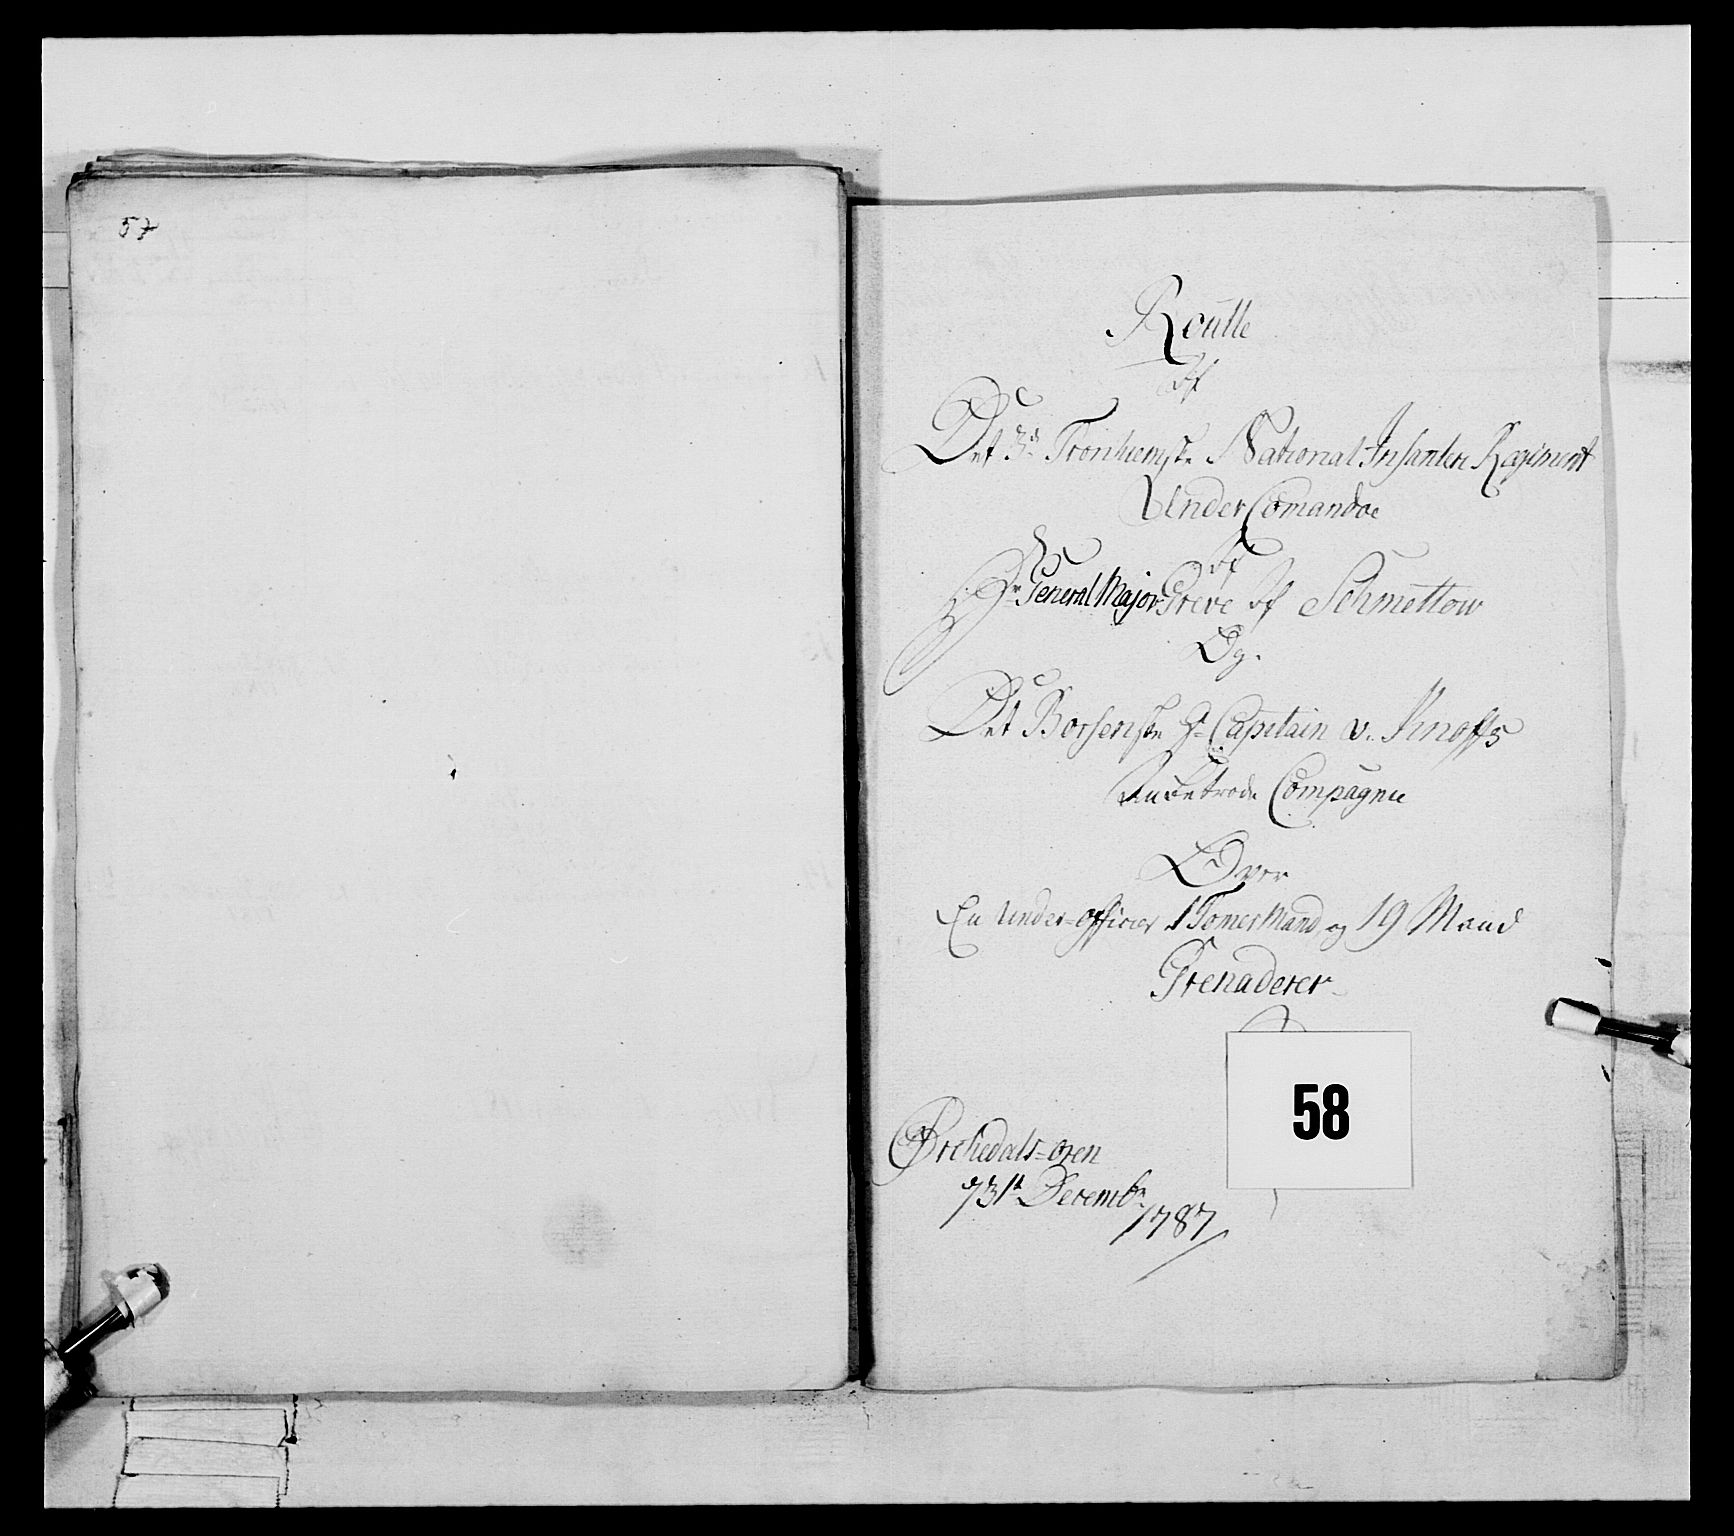 57
Roulle
Af
Det 3de Tronhiemske National Infanterie Regiment
Under Comandoe
Af
Hr General Major Greve Af Schmettow
Og.
Det Børsenske Hr Capitain v. Knoffs
Anbetrode Compagnie
Over
En Under-officier 1 Tømermand og 19 Mand
Grenaderer
58
Orchedals-øren
d 31te Decembr
1787